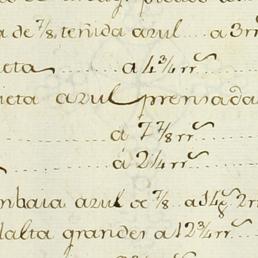 a de 7/8 teñida azul .... a 3 rr
eta ........ a 4 3/4 rr
ueta azul prensada
a 7 7/8 rr
á 2 1/4 rr
nbaia azul de 7/8 a 14
dalta grandes a 12 3/4 rr